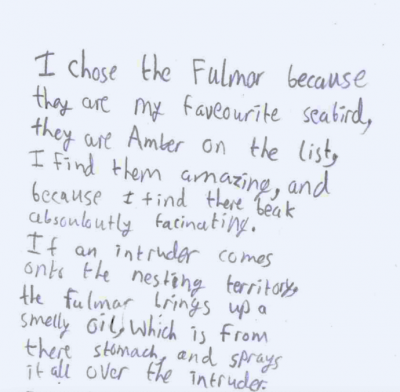 I chose the Fulmar because
they are my faveourite seabird,
they are Amber on the list,
I find them amazing, and
because I find there beak
absouloutly facinating.
If an intruder comes
onto the nesting territory,
the fulmar brings up a
smelly oil, which is from
there stomach, and sprays
it all over the intruder.